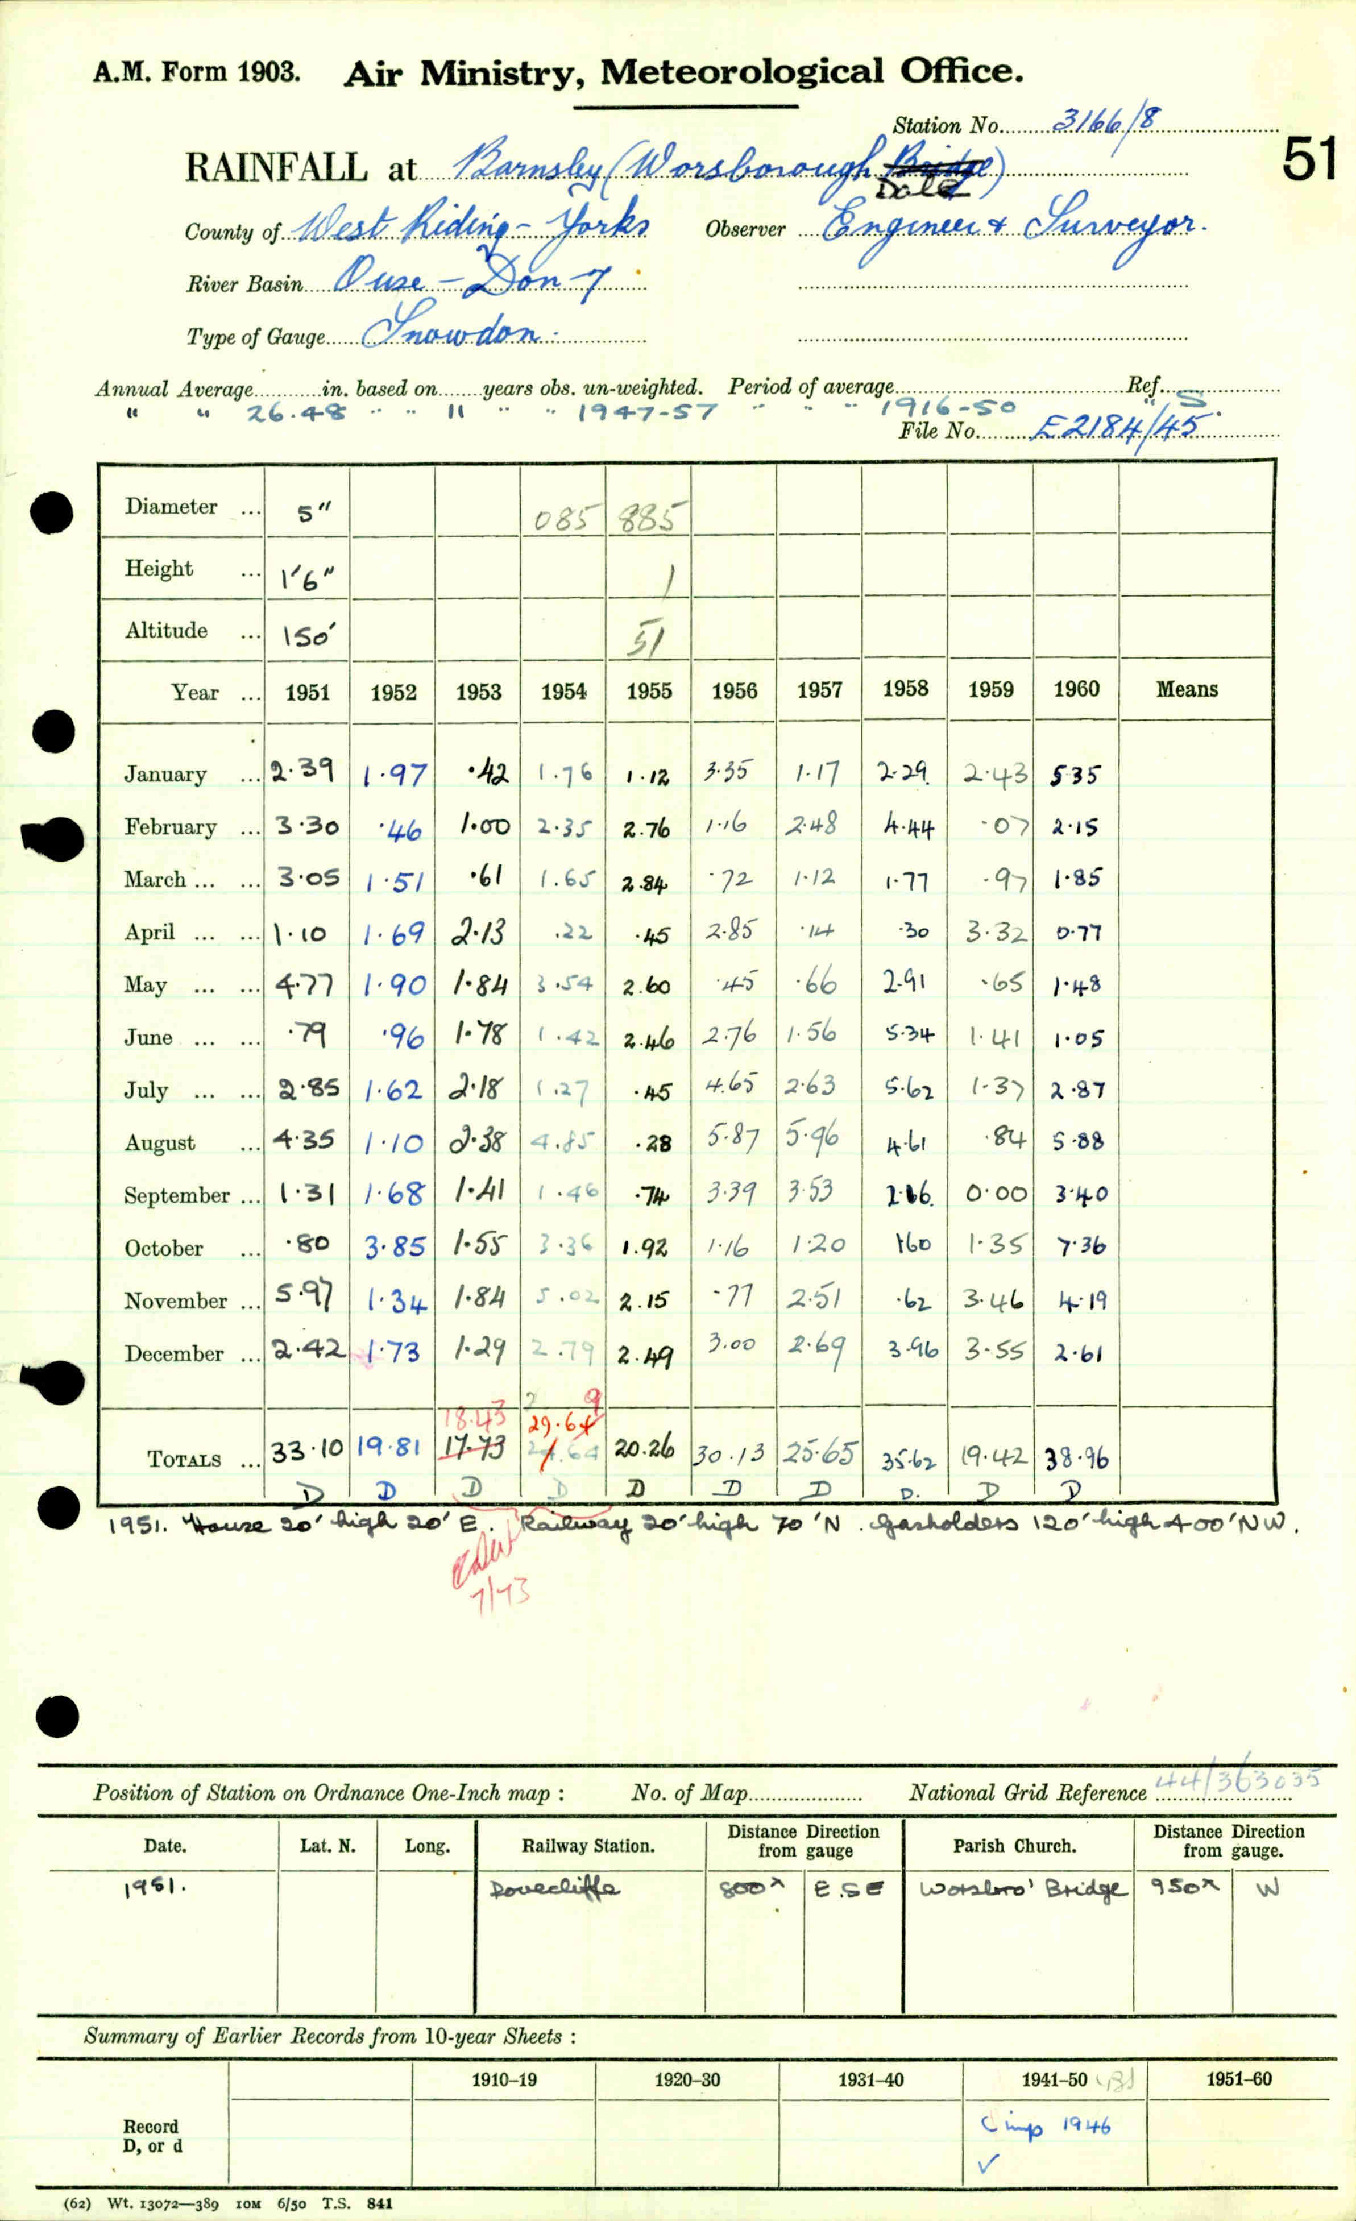 A.M. Form 1903. Air Ministry, Meteorological Office.
Station No. 3166/8
51
RAINFALL at Barnsley (Worsborough Bridge)
Dale
County of West Riding - Yorks Observer Engineer & Surveyor.
River Basin Ouse - Don 7
Type of Gauge Snowdon
Annual Average in. based on years obs. un-weighted. Period of average Ref.
" " 26.48 " " 11 " " 1947-57 " " " 1916-50 " S.
File No. E2184/45
Diameter ... 5" 085 885
Height ... 1'6" 1
Altitude ... 150' 51
Year ... 1951 1952 1953 1954 1955 1956 1957 1958 1959 1960 Means
January ... 2.39 1.97 .42 1.76 1.12 3.35 1.17 2.29 2.43 5.35
February ... 3.30 .46 1.00 2.35 2.76 1.16 2.48 4.44 .07 2.15
March ... ... 3.05 1.51 .61 1.65 2.84 .72 1.12 1.77 .97 1.85
April ... ... 1.10 1.69 2.13 .22 .45 2.85 .14 .30 3.32 0.77
May ... ... 4.77 1.90 1.84 3.54 2.60 .45 .66 2.91 .65 1.48
June ... ... .79 .96 1.78 1.42 2.46 2.76 1.56 5.34 1.41 1.05
July ... ... 2.85 1.62 2.18 1.27 .45 4.65 2.63 5.62 1.37 2.87
August ... 4.35 1.10 2.38 4.85 .28 5.87 5.96 4.61 .84 5.88
September ... 1.31 1.68 1.41 1.46 .74 3.39 3.53 2.16 0.00 3.40
October ... .80 3.85 1.55 3.36 1.92 1.16 1.20 1.60 1.35 7.36
November ... 5.97 1.34 1.84 5.02 2.15 .77 2.51 .62 3.46 4.19
December ... 2.42 1.73 1.29 2.79 2.49 3.00 2.69 3.96 3.55 2.61
18.43 29.64 9
TOTALS ... 33.10 19.81 17.73 20.26 30.13 25.65 35.62 19.42 38.96
D D D D D D D D. D D
1951. House 20' high 20' E. Railway 20' high 70' N. Gasholders 120' high 400' NW.
7/73
Position of Station on Ordnance One-Inch map : No. of Map National Grid Reference 44/363035
Date. Lat. N. Long. Railway Station. Distance Direction from gauge Parish Church. Distance Direction from gauge.
1951. Dovecliffe 800x E.SE Worsbro' Bridge 950x W
Summary of Earlier Records from 10-year Sheets :
1910-19 1920-30 1931-40 1941-50 1951-60
Record D, or d C imp 1946
✓
(62) Wt. 13072—389 10M 6/50 T.S. 841